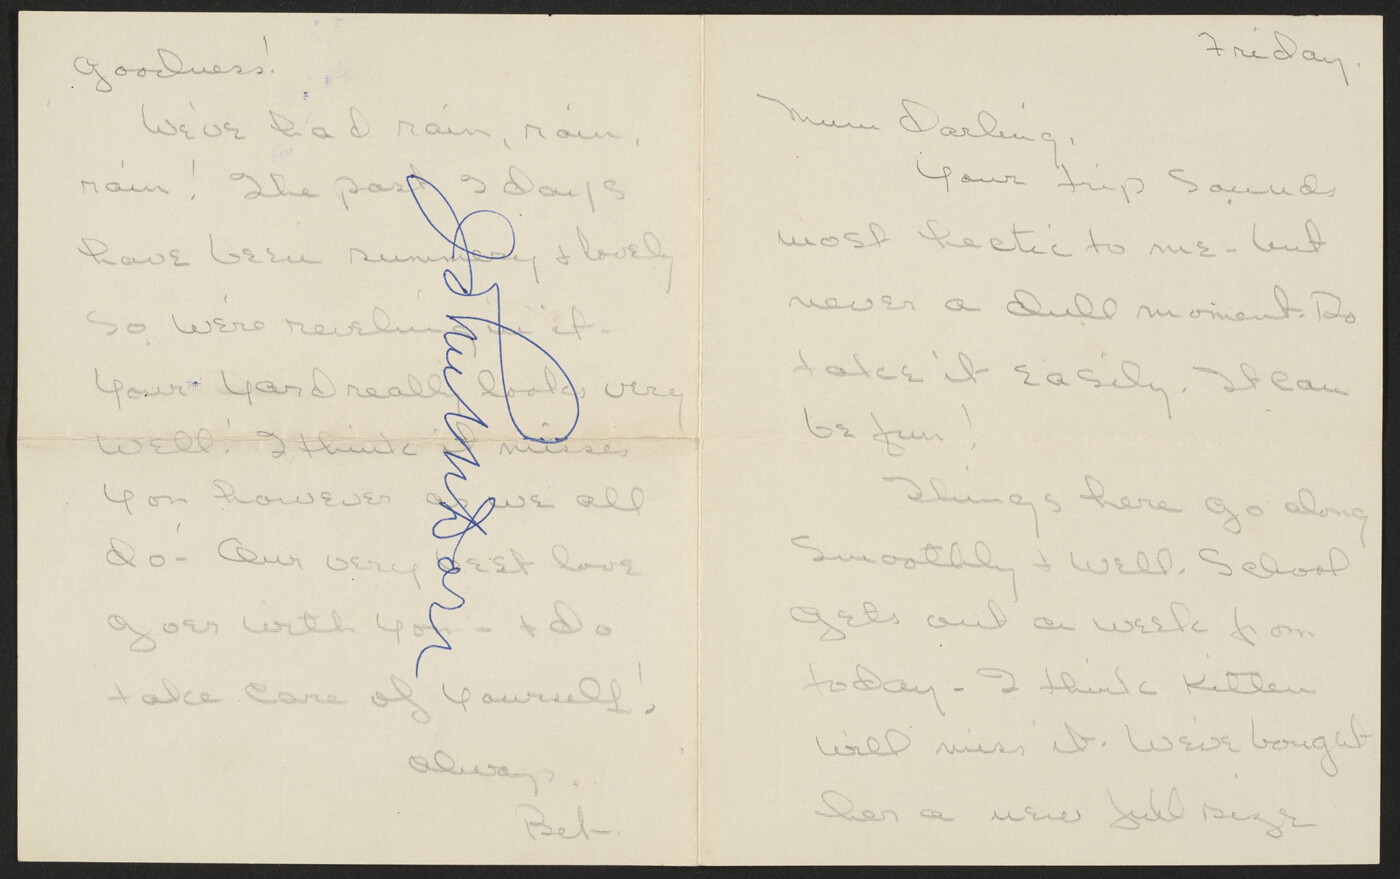 Friday.
Mum Darling,
Your trip sounds
most hectic to me - but
never a dull moment. Do
take it easily. It can
be fun!
Things here go along
smoothly + well. School
gets out a week from
today - I think Kitten
will miss it. We've bought
her a new full size
goodness!
We've had rain, rain,
rain! The past 2 days
have been summery + lovely
so we're reveling in it -
Your yard really looks very
well! I think it misses
you however as we all
do - Our very best love
goes with you - + do
take care of yourself!
Always,
Bet -